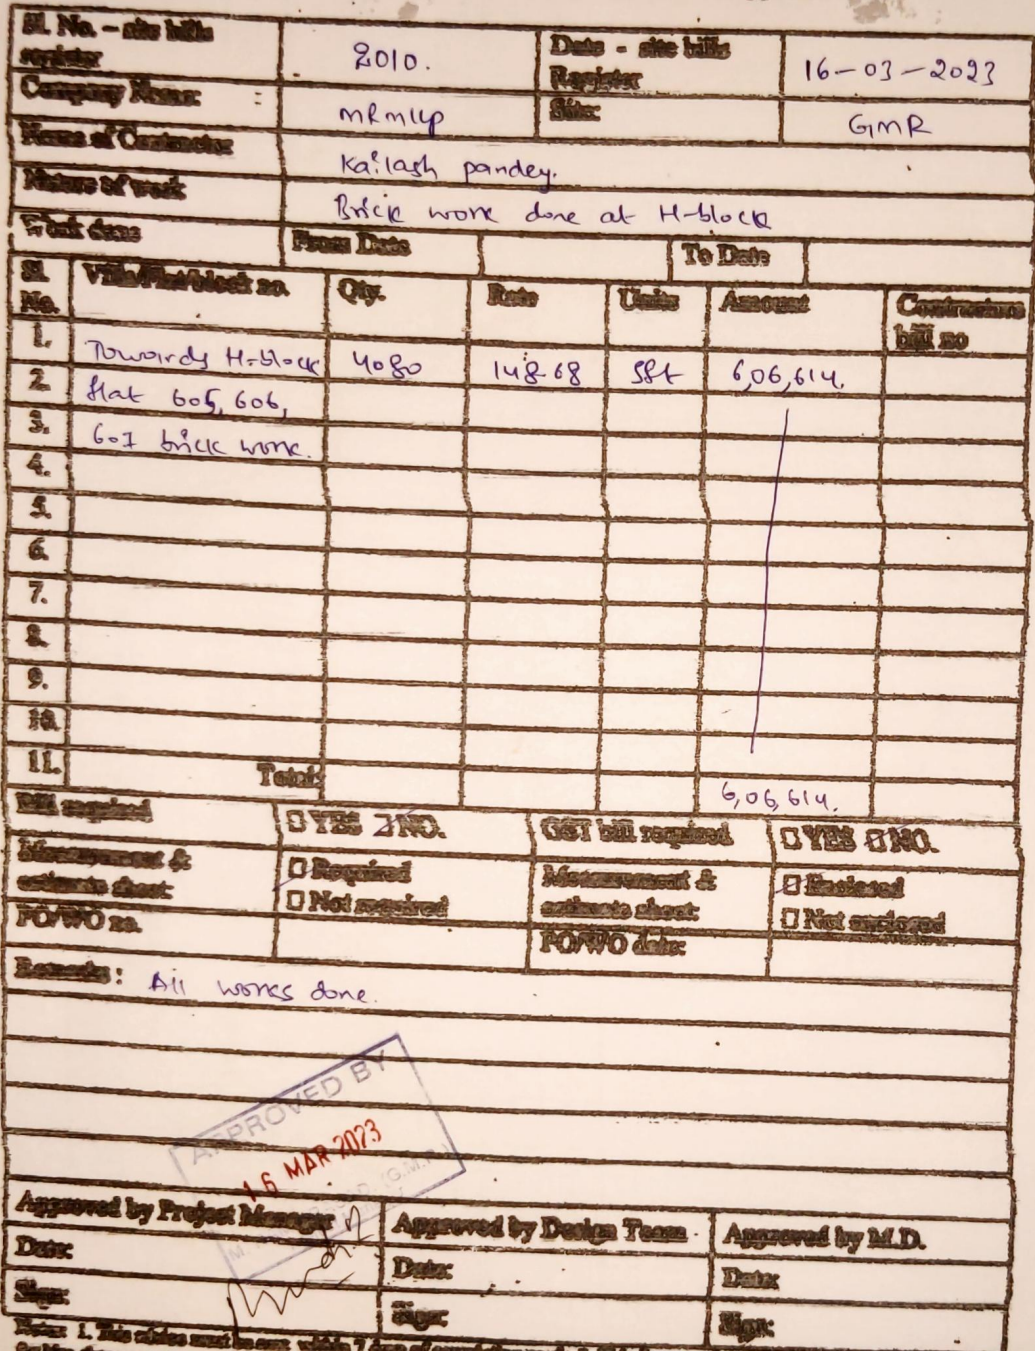 Sl. No. – site bills register 2010. Date - site bills Register 16-03-2023
Company Name: MRMLLP Site: GMR
Name of Contractor Kailash pandey.
Nature of work Brick work done at H-block
Work done From Date To Date
Sl. No. Villa/Flat/block no. Qty. Rate Units Amount Contractors bill no
1. Towards H-block 4080 148-68 Sft 6,06,614.
2. flat 605, 606,
3. 607 brick work.
4.
5.
6.
7.
8.
9.
10.
11. Total: 6,06,614.
Bill required YES NO. GST bill required YES NO.
Measurement & estimate sheet: Required Not required Measurement & estimate sheet: Enclosed Not enclosed
PO/WO no. PO/WO date:
Remarks: All works done.
APPROVED BY
16 MAR 2023
Approved by Project Manager Approved by Design Team Approved by M.D.
Date: Date: Date:
Sign: Sign: Sign:
Note: 1. This advice must be sent within 7 days of